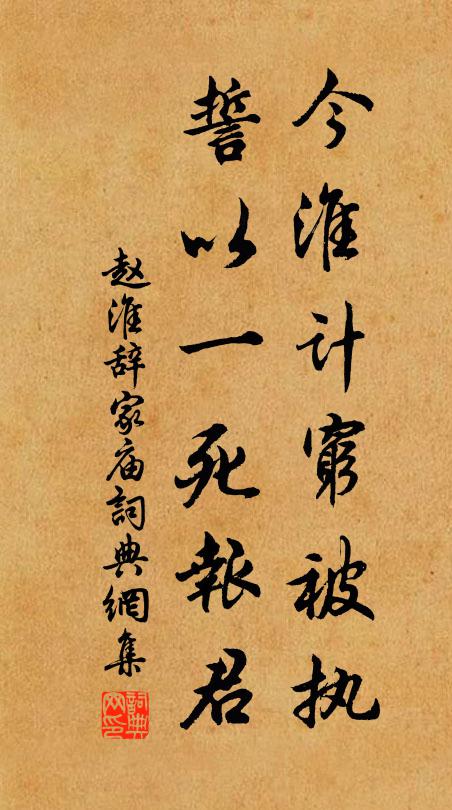 今淮计窮被执
誓以一死報君
赵淮辞家庙詞典網集
詞典网印